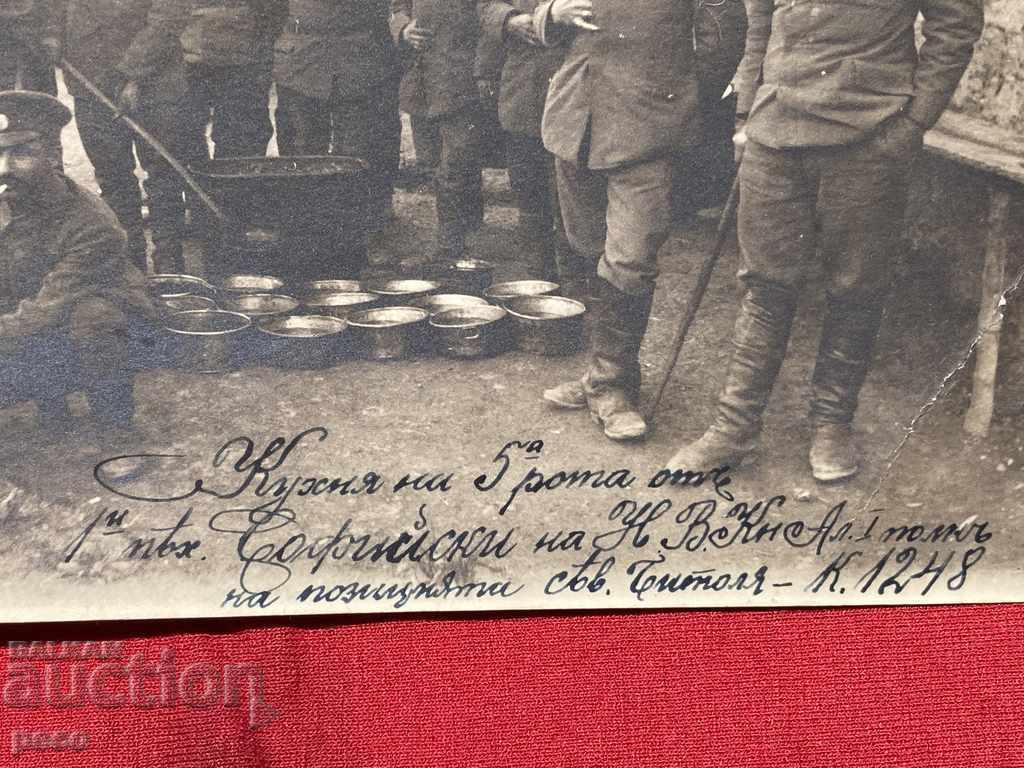 Кухня на 5ᵃ рота отъ
1ᴵᴵ пѣх. Софийски на Н. В. Кн Ал. I полкъ
на позицията сѣв. Битоля - К. 1248
BALKAN
auction
peco